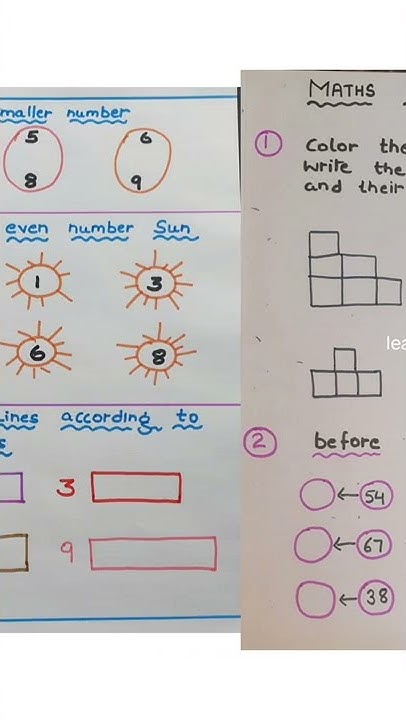 maller number
5 6
8 9
even number Sun
1 3
6 8
Lines according to
s
3
9
MATHS
1 Color the
write the
and their
lea
2 before
←54
←67
←38